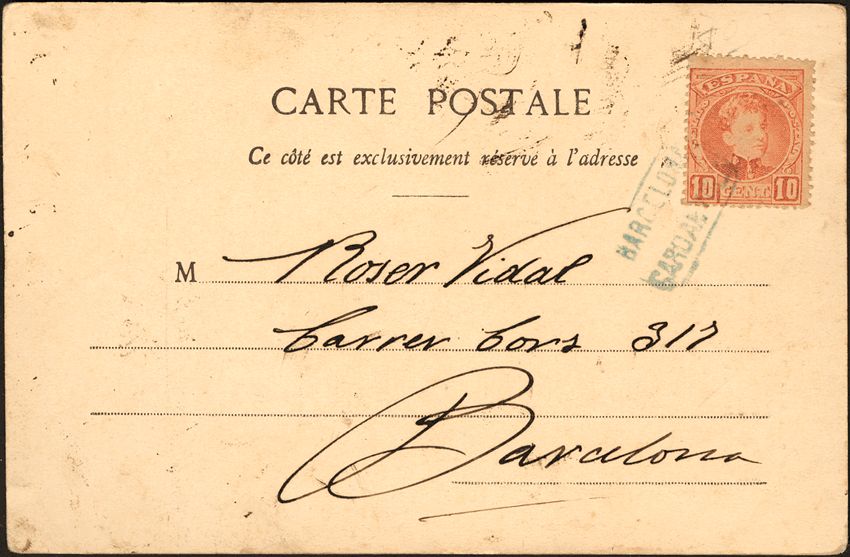 CARTE POSTALE
Ce côté est exclusivement réservé à l'adresse
ESPAÑA
10 CENT 10
BARCELONA
M Roser Vidal
Carrer Cors 317
Barcelona